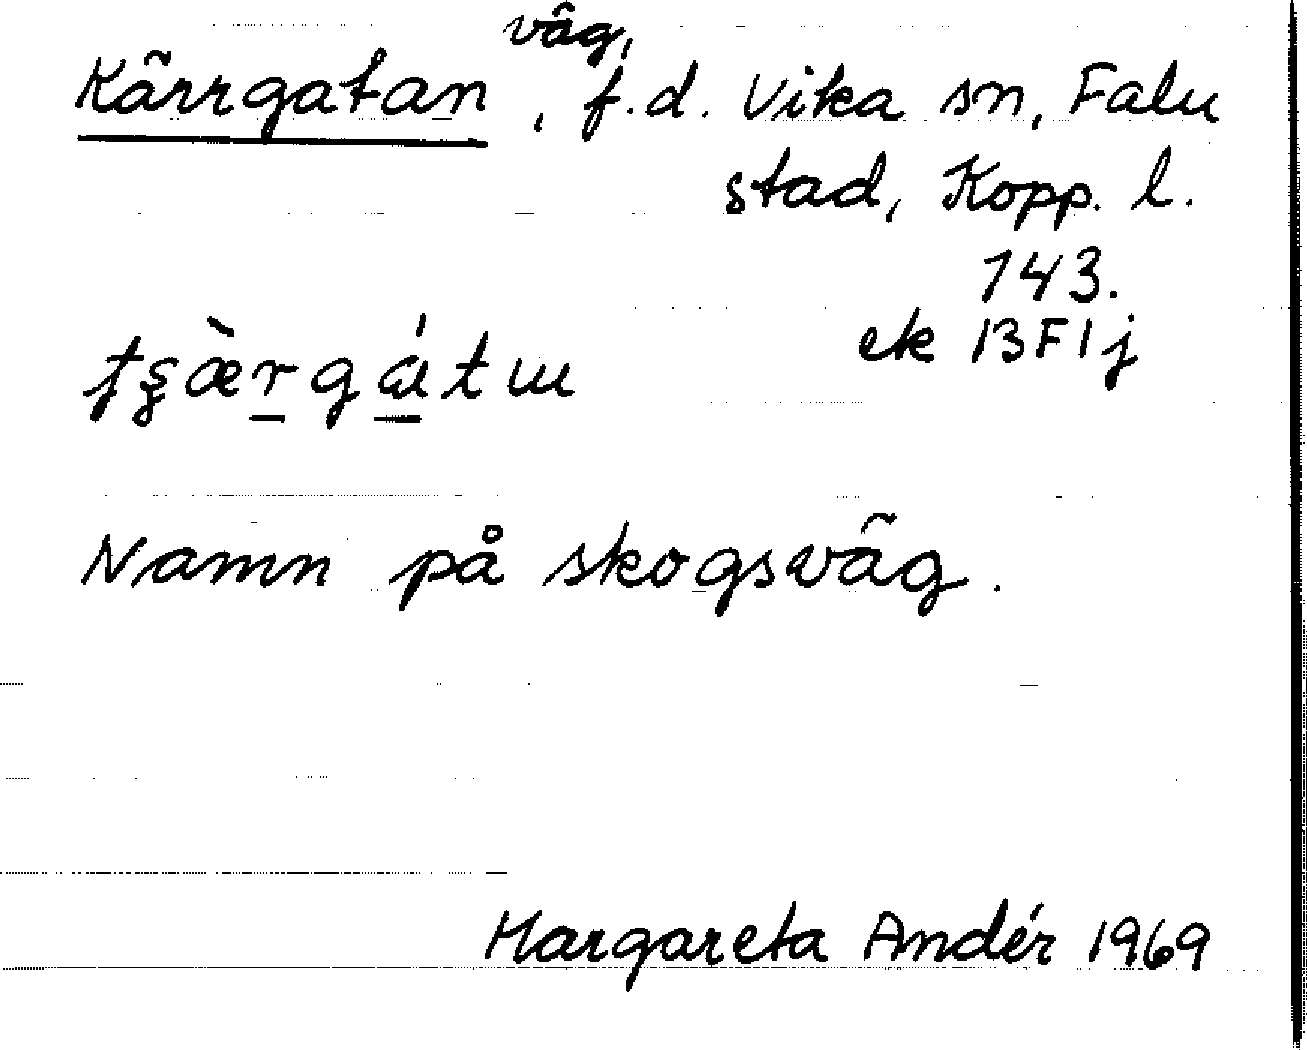 väg,
Kärrgatan, f.d. Vika sn, Falu
stad, Kopp. l.
143.
ek 13F1j
Namn på skogsväg.
Margareta Andér 1969